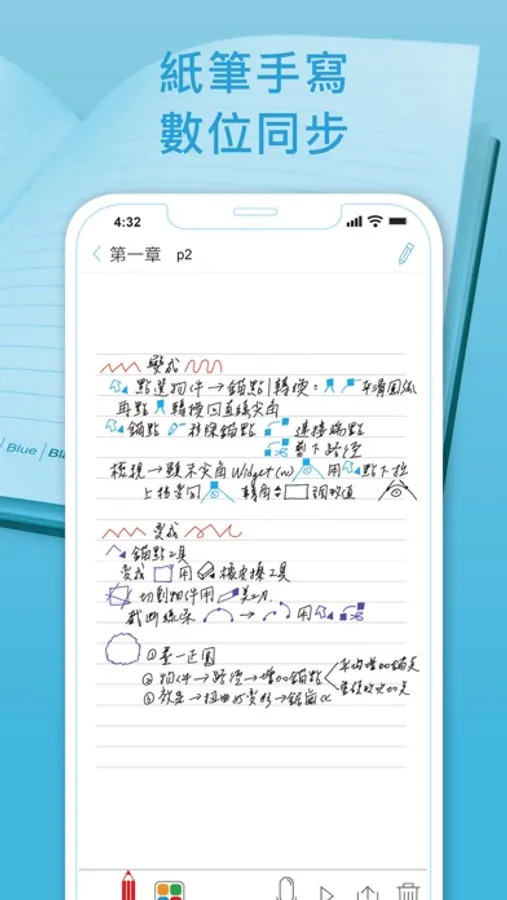 紙筆手寫
數位同步
4:32
第一章 p2
Blue
變成
點選物件→錨點|轉換: 平滑圓弧
再點 轉換回直線尖角
錨點 移除錨點 連接端點
剪下路徑
檢視→顯示尖角Widget(w) 用 點下拉
轉角 調數值
變成
錨點工具
變成 用 橡皮擦工具
切割物件用 美工刀
截斷線條 → 用
①畫一正圓
②物件→路徑→增加錨點
③效果→扭曲與變形→鋸齒化